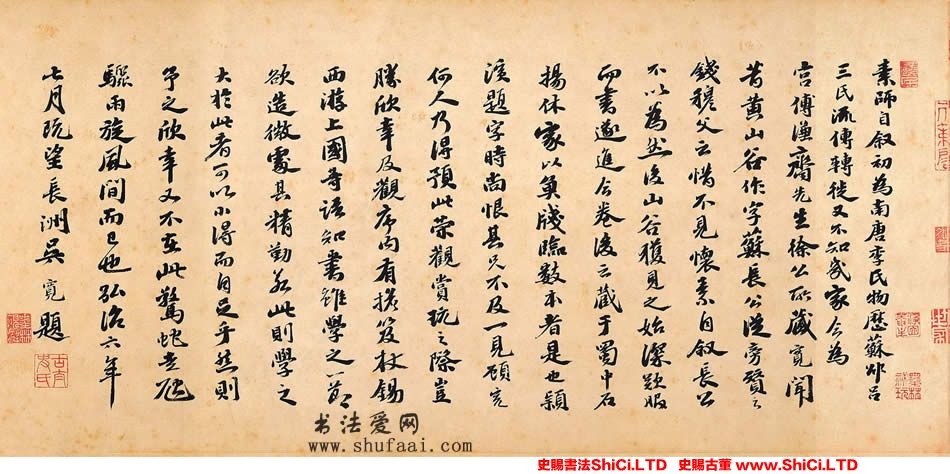 素師自叙初為南唐李氏物歷蘇邵呂
三氏流傳轉徙又不知幾家今為
宫傅謙齋先生徐公所藏寬聞
昔黄山谷作字蘇長公從旁贊之
錢穆父云惜不見懷素自叙長公
不以為然後山谷獲見之始深歎服
而書遂進今卷後云藏于蜀中石
揚休家以魚牋臨數本者是也潁
濱題字時尚恨其兄不及一見顧寬
何人乃得預此榮觀賞玩之際豈
勝欣幸及觀序内有擔笈杖錫
西游上國等語知書雖學之一節
欲造微處其精勤如此則學之
大於此者可以小得而自足乎然則
予之欣幸又不在此驚蛇走虺
驟雨旋風間而已也弘治六年
七月既望長洲吳寬題
书法爱网
www.shufaai.com
史賜書法ShiCi.LTD 史賜古董www.ShiCi.LTD